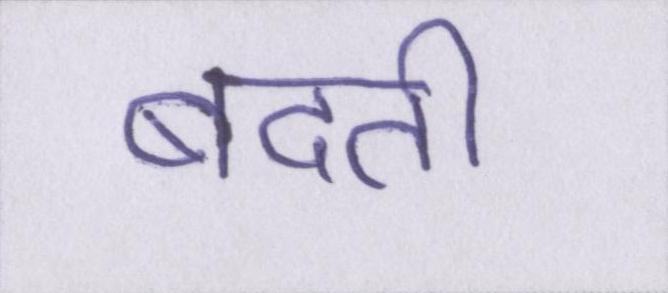 बदती